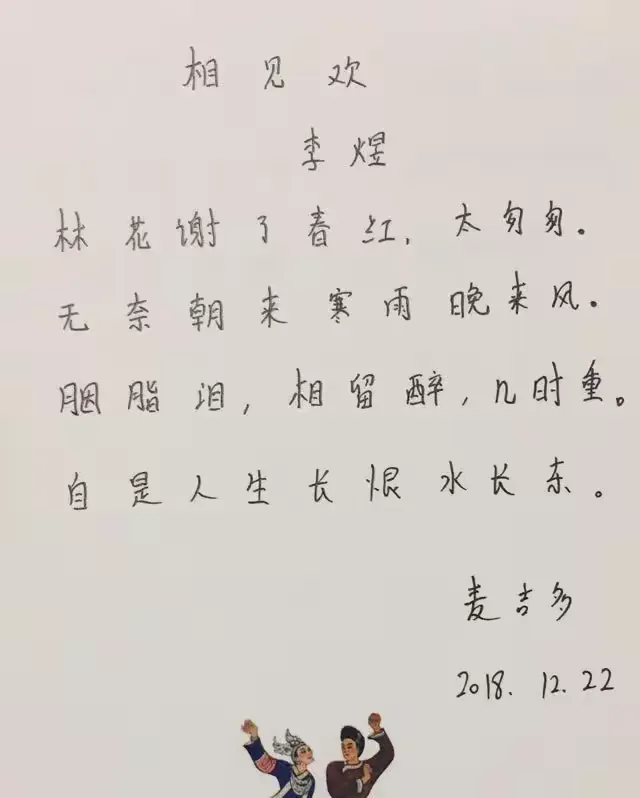 相见欢
李煜
林花谢了春红，太匆匆。
无奈朝来寒雨晚来风。
胭脂泪，相留醉，几时重。
自是人生长恨水长东。
麦吉多
2018.12.22